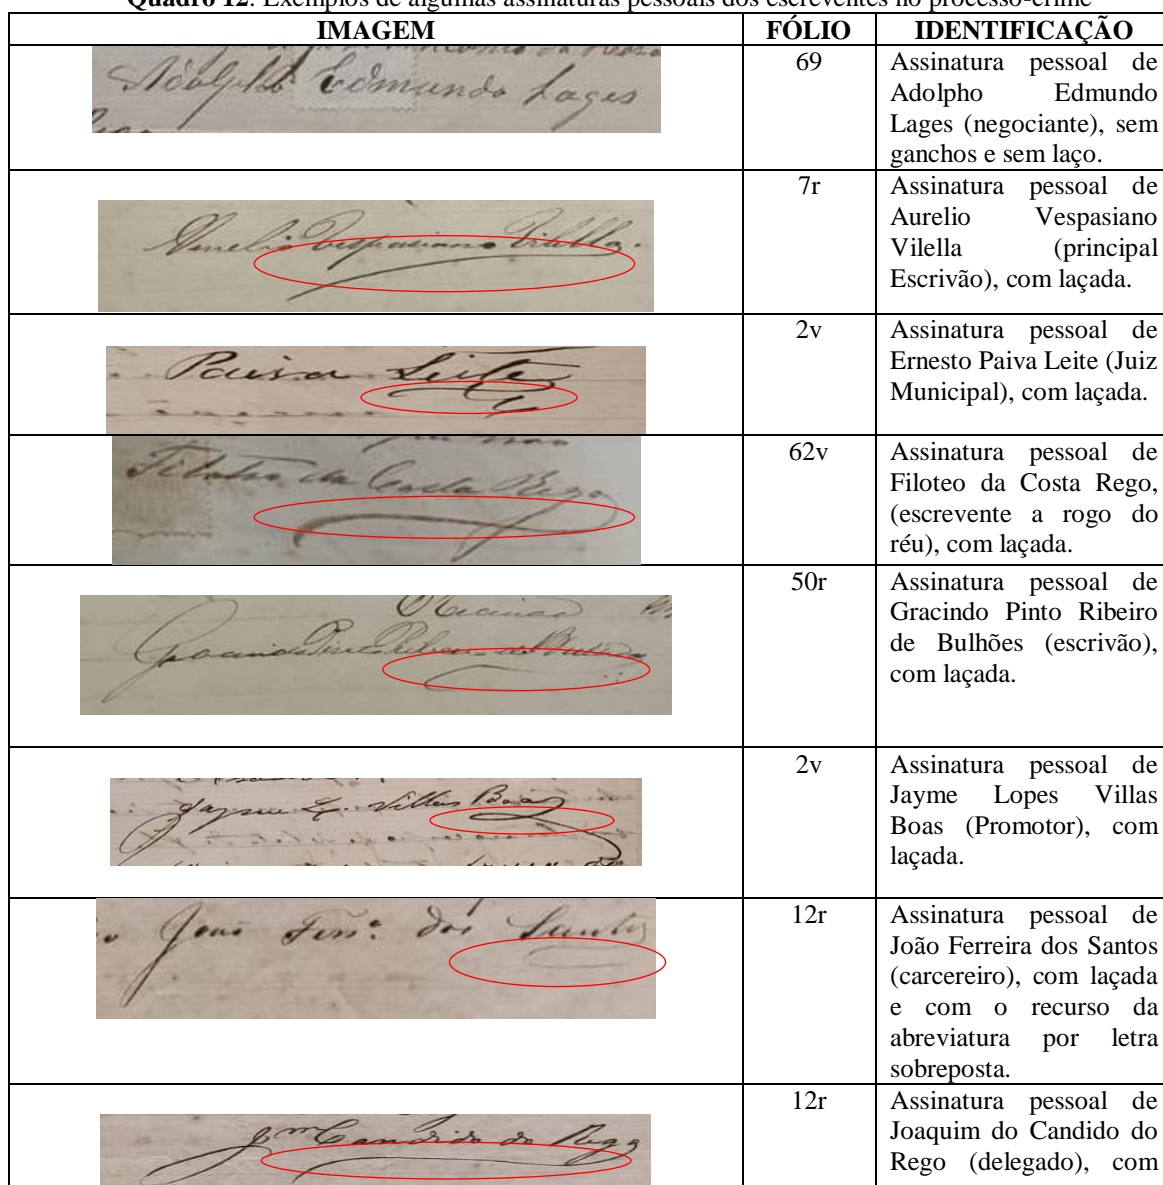 Quadro 12. Exemplos de algumas assinaturas pessoais dos escreventes no processo-crime
IMAGEM FÓLIO IDENTIFICAÇÃO
Adolpho Edmundo Lages
69
Assinatura pessoal de
Adolpho Edmundo
Lages (negociante), sem
ganchos e sem laço.
Aurelio Vespasiano Vilella.
7r
Assinatura pessoal de
Aurelio Vespasiano
Vilella (principal
Escrivão), com laçada.
Paiva Leite
2v
Assinatura pessoal de
Ernesto Paiva Leite (Juiz
Municipal), com laçada.
Filoteo da Costa Rego
62v
Assinatura pessoal de
Filoteo da Costa Rego,
(escrevente a rogo do
réu), com laçada.
Gracindo Pinto Ribeiro de Bulhões
50r
Assinatura pessoal de
Gracindo Pinto Ribeiro
de Bulhões (escrivão),
com laçada.
Jayme L. Villas Boas
2v
Assinatura pessoal de
Jayme Lopes Villas
Boas (Promotor), com
laçada.
João Ferrª dos Santos
12r
Assinatura pessoal de
João Ferreira dos Santos
(carcereiro), com laçada
e com o recurso da
abreviatura por letra
sobreposta.
Jm Candido do Rego
12r
Assinatura pessoal de
Joaquim do Candido do
Rego (delegado), com